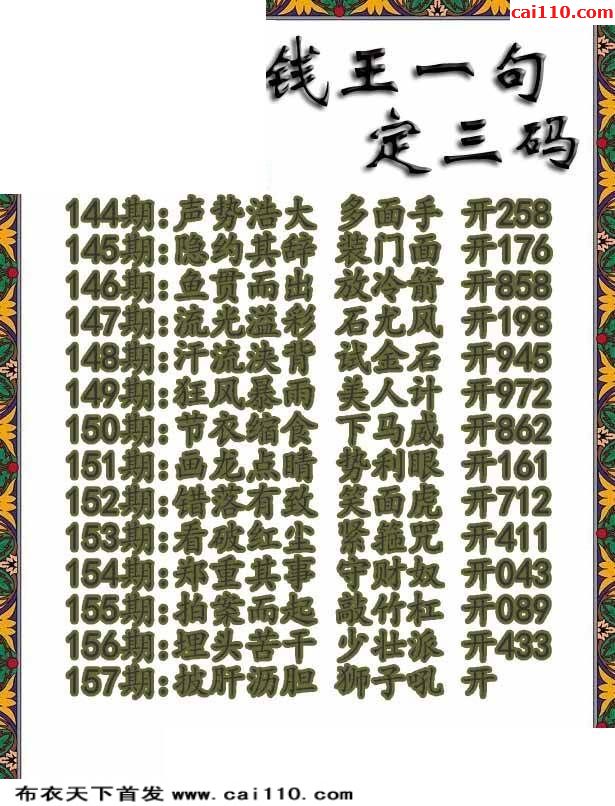 cai110.com
钱王一句
定三码
144期:声势浩大 多面手 开258
145期:隐约其辞 装门面 开176
146期:鱼贯而出 放冷箭 开858
147期:流光溢彩 石尤风 开198
148期:汗流浃背 试金石 开945
149期:狂风暴雨 美人计 开972
150期:节衣缩食 下马威 开862
151期:画龙点睛 势利眼 开161
152期:错落有致 笑面虎 开712
153期:看破红尘 紧箍咒 开411
154期:郑重其事 守财奴 开043
155期:拍案而起 敲竹杠 开089
156期:埋头苦干 少壮派 开433
157期:披肝沥胆 狮子吼 开
布衣天下首发 www.cai110.com